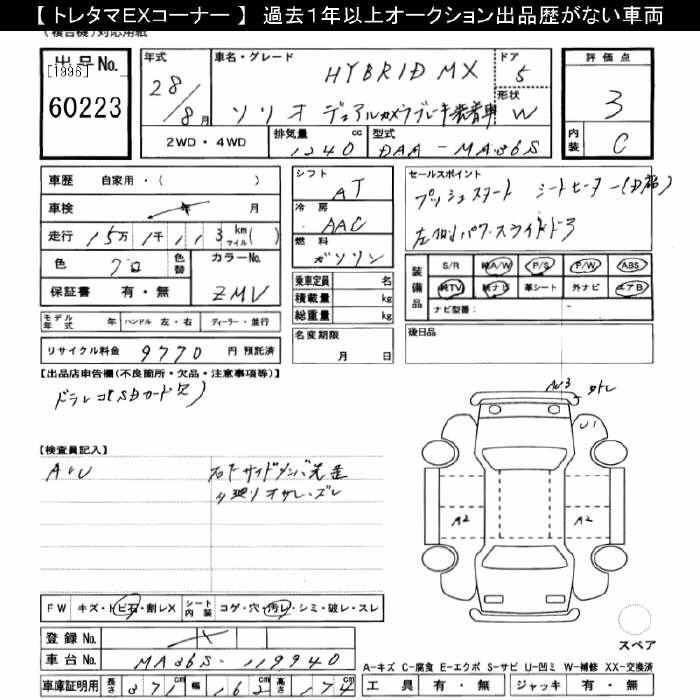 【 トレタマEXコーナー 】 過去１年以上オークション出品歴がない車両
(複合機)対応用紙
出品No. [1996]
60223
年式 28/8月
車名・グレード HYBRID MX
ソリオ デュアルカメラブレーキ装着車
ドア 5
形状 W
評価点 3
内装 C
2WD・4WD
排気量 1240 cc
型式 DAA-MA36S
車歴 自家用・( )
車検 年 月
走行 15万1千113 km マイル( )
色 クロ 色替 カラーNo. ZMV
保証書 有・無
モデル年式 年 ハンドル 左・右 ディーラー・並行
リサイクル料金 9770 円 預託済
シフト AT
冷房 AAC
燃料 ガソリン
乗車定員 名
積載量 kg
総重量 kg
名変期限 月 日
セールスポイント
プッシュスタート シートヒーター
左側パワースライドドア
装備品 S/R 純A/W P/S P/W ABS
純TV 純ナビ 革シート 外ナビ エアB
ナビ型番：
後日品
【出品店申告欄(不良箇所・欠品・注意事項等)】
ドラレコ(SDカード欠)
【検査員記入】
A、U
右下サイドメンバー先歪
廻りオサレ・ズレ
AU3
U1
A2
A2
スペア
FW キズ・トビ石・割レX シート内装 コゲ・穴・汚レ・シミ・破レ・スレ
登録No.
車台No. MA36S-119940
車庫証明用 長さ 371cm 幅 162cm 高さ 174cm
A-キズ C-腐食 E-エクボ S-サビ U-凹ミ W-補修 XX-交換済
工具 有・無 ジャッキ 有・無